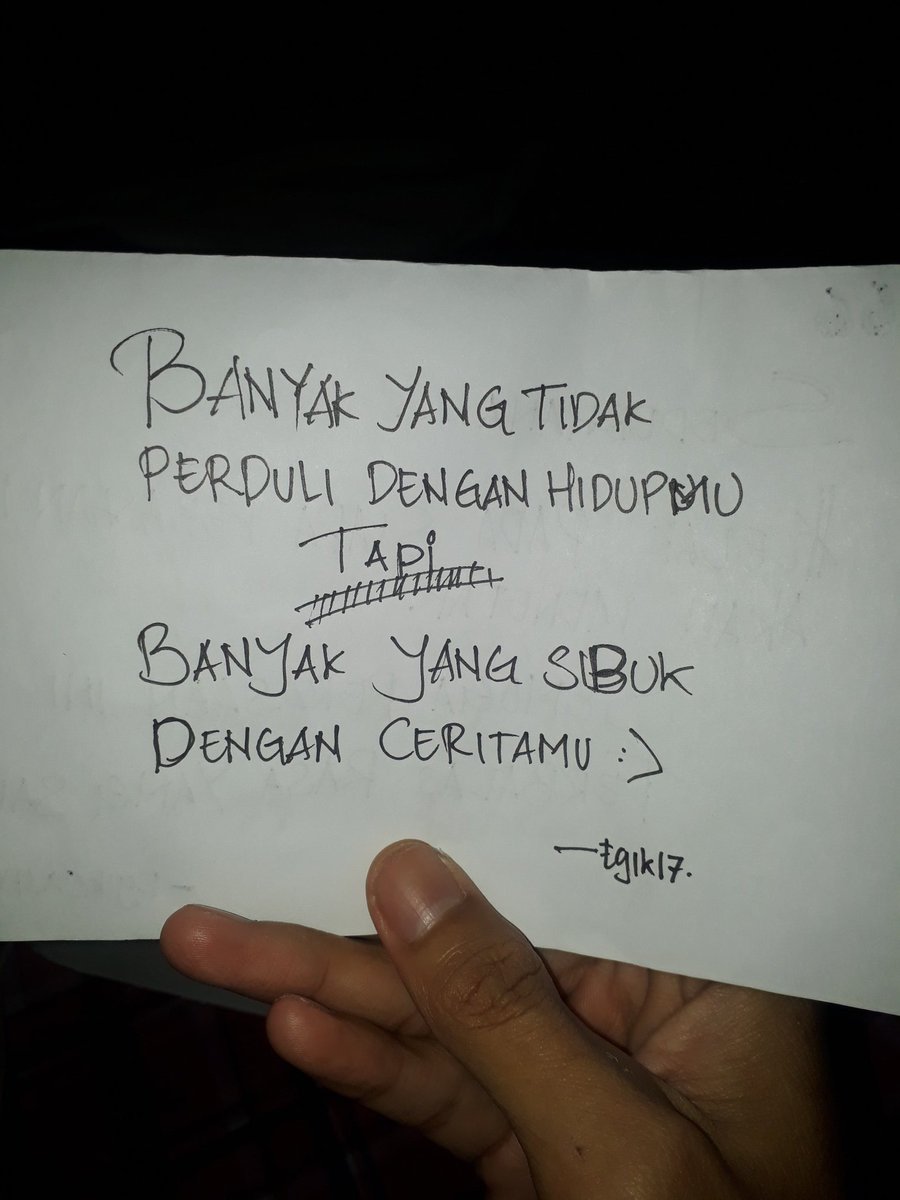 BANYAK YANG TIDAK
PERDULI DENGAN HIDUPMU
TAPi
BANYAK YANG SIBUK
DENGAN CERITAMU :)